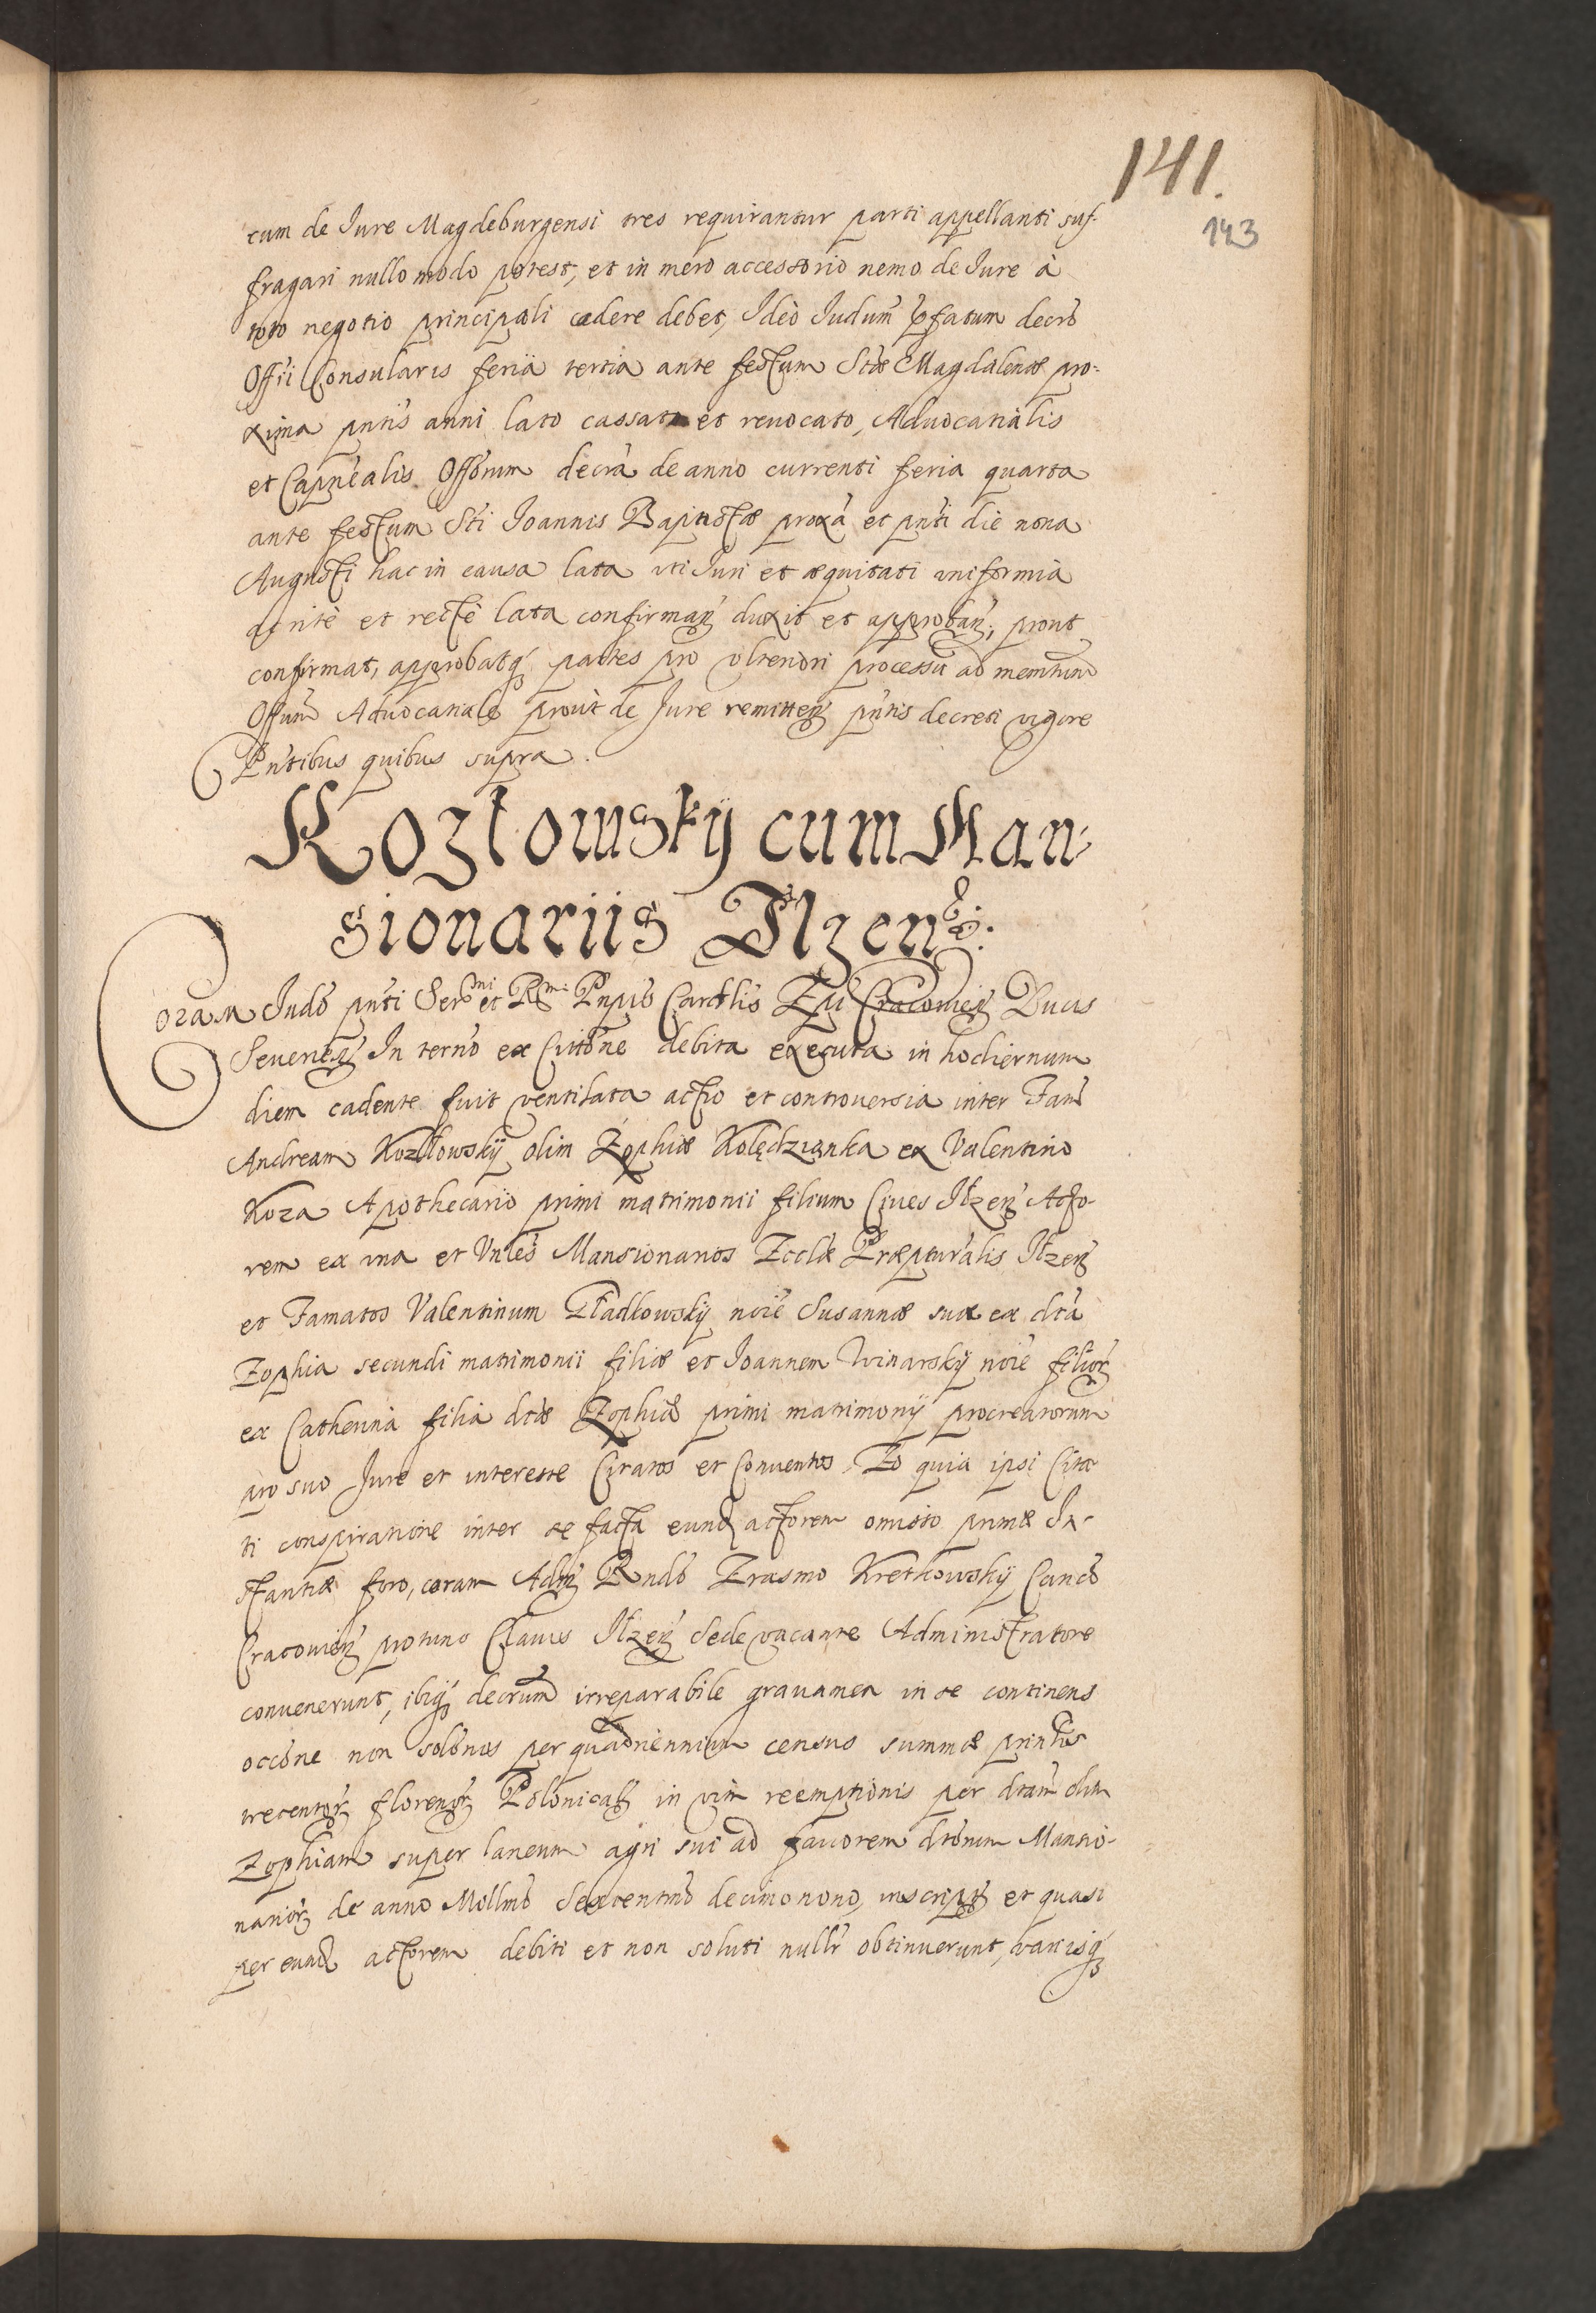 141.
143
cum de Jure Magdeburgensi tres requirantur parti appellanti suf-
fragari nullo modo potest, et in mero accessorio nemo de Jure à
toto negotio principali cadere debet, Ideò Iudum pfatum decrõ
Offii Consularis feria tertia ante festum Stæ Magdalenæ pro-
xima pntis anni lato cassato et revocato, Advocatialis
et Capnealis Offorum decra de anno currenti feria quarta
ante festum Sti Joannis Baptistæ proxa et pnti die nona
Augusti hac in causa lata uti Juri et æquitati uniformia
ac ritè et rectè lata confirman duxit et approban, prout
confirmat, approbatq partes pro ulteriori processu ad memtum
Offum Advocatiale prout de Jure remitten pntis decreti vigore
Pntibus quibus supra.
Kozłowskij cum Man-
sionariis Ilzen.
Coram Judõ pnti Sermi et Rmi Pnpis Cardlis Epi Cracovien Ducis
Severien In terno ex Cittone debita executa in hodiernum
diem cadente fuit ventilata actio et controversia inter Fam
Andream Kozłowskij olim Zophiæ Kolędzianka ex Valentino
Koza Apothecario primi matrimonii filium Cives Ilzen Acto-
rem ex una et Vnles Mansionarios Ecclæ Præpturalis Ilzen
et Famatos Valentinum Pładkowskij noie Susannæ suæ ex dta
Zophia secundi matrimonii filiæ et Joannem Winarskij noie filior
ex Catherina filia dtæ Zophiæ primi matrimonij procreatorum
pro suo Jure et interesse Citatos et Conventos, Eo quia ipsi Cita
ti conspiratione inter se facta eund actorem omisso primæ In-
stantiæ foro, coram Adm Rndo Erasmo Kretkowskij Canco
Cracovien protunc Clavis Ilzen Sede vacante Administratore
convenerunt, ibiq decrum irreparabile gravamen in se continens
occone non solonis per quadriennium census summæ prinlis
trecentor florenor Polonical in vim reemptionis per dtam olim
Zophiam super laneum agri sui ad favorem dtorum Mansio-
narior de anno Millmo Sexcentmo decimo nono, inscript et quasi
per eund actorem debiti et non soluti nullr obtinuerunt, varisq